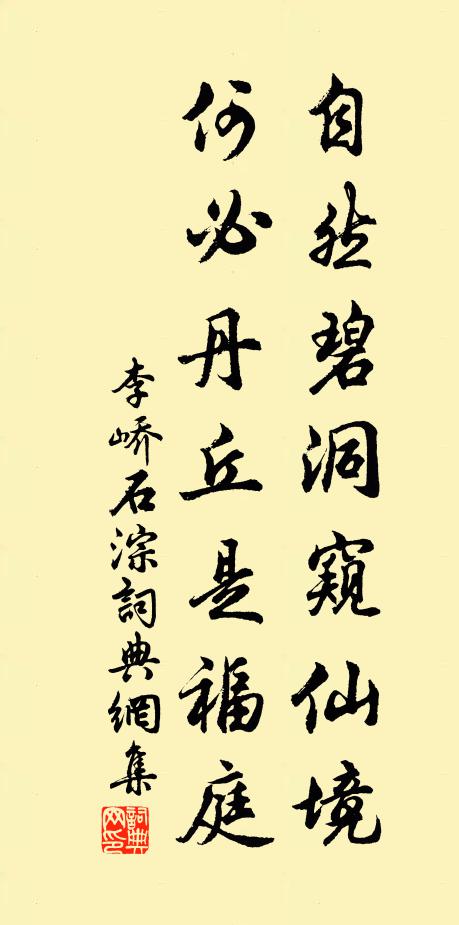 自然碧洞窺仙境
何必丹丘是福庭
李嶠石淙詞典網集
詞典网印